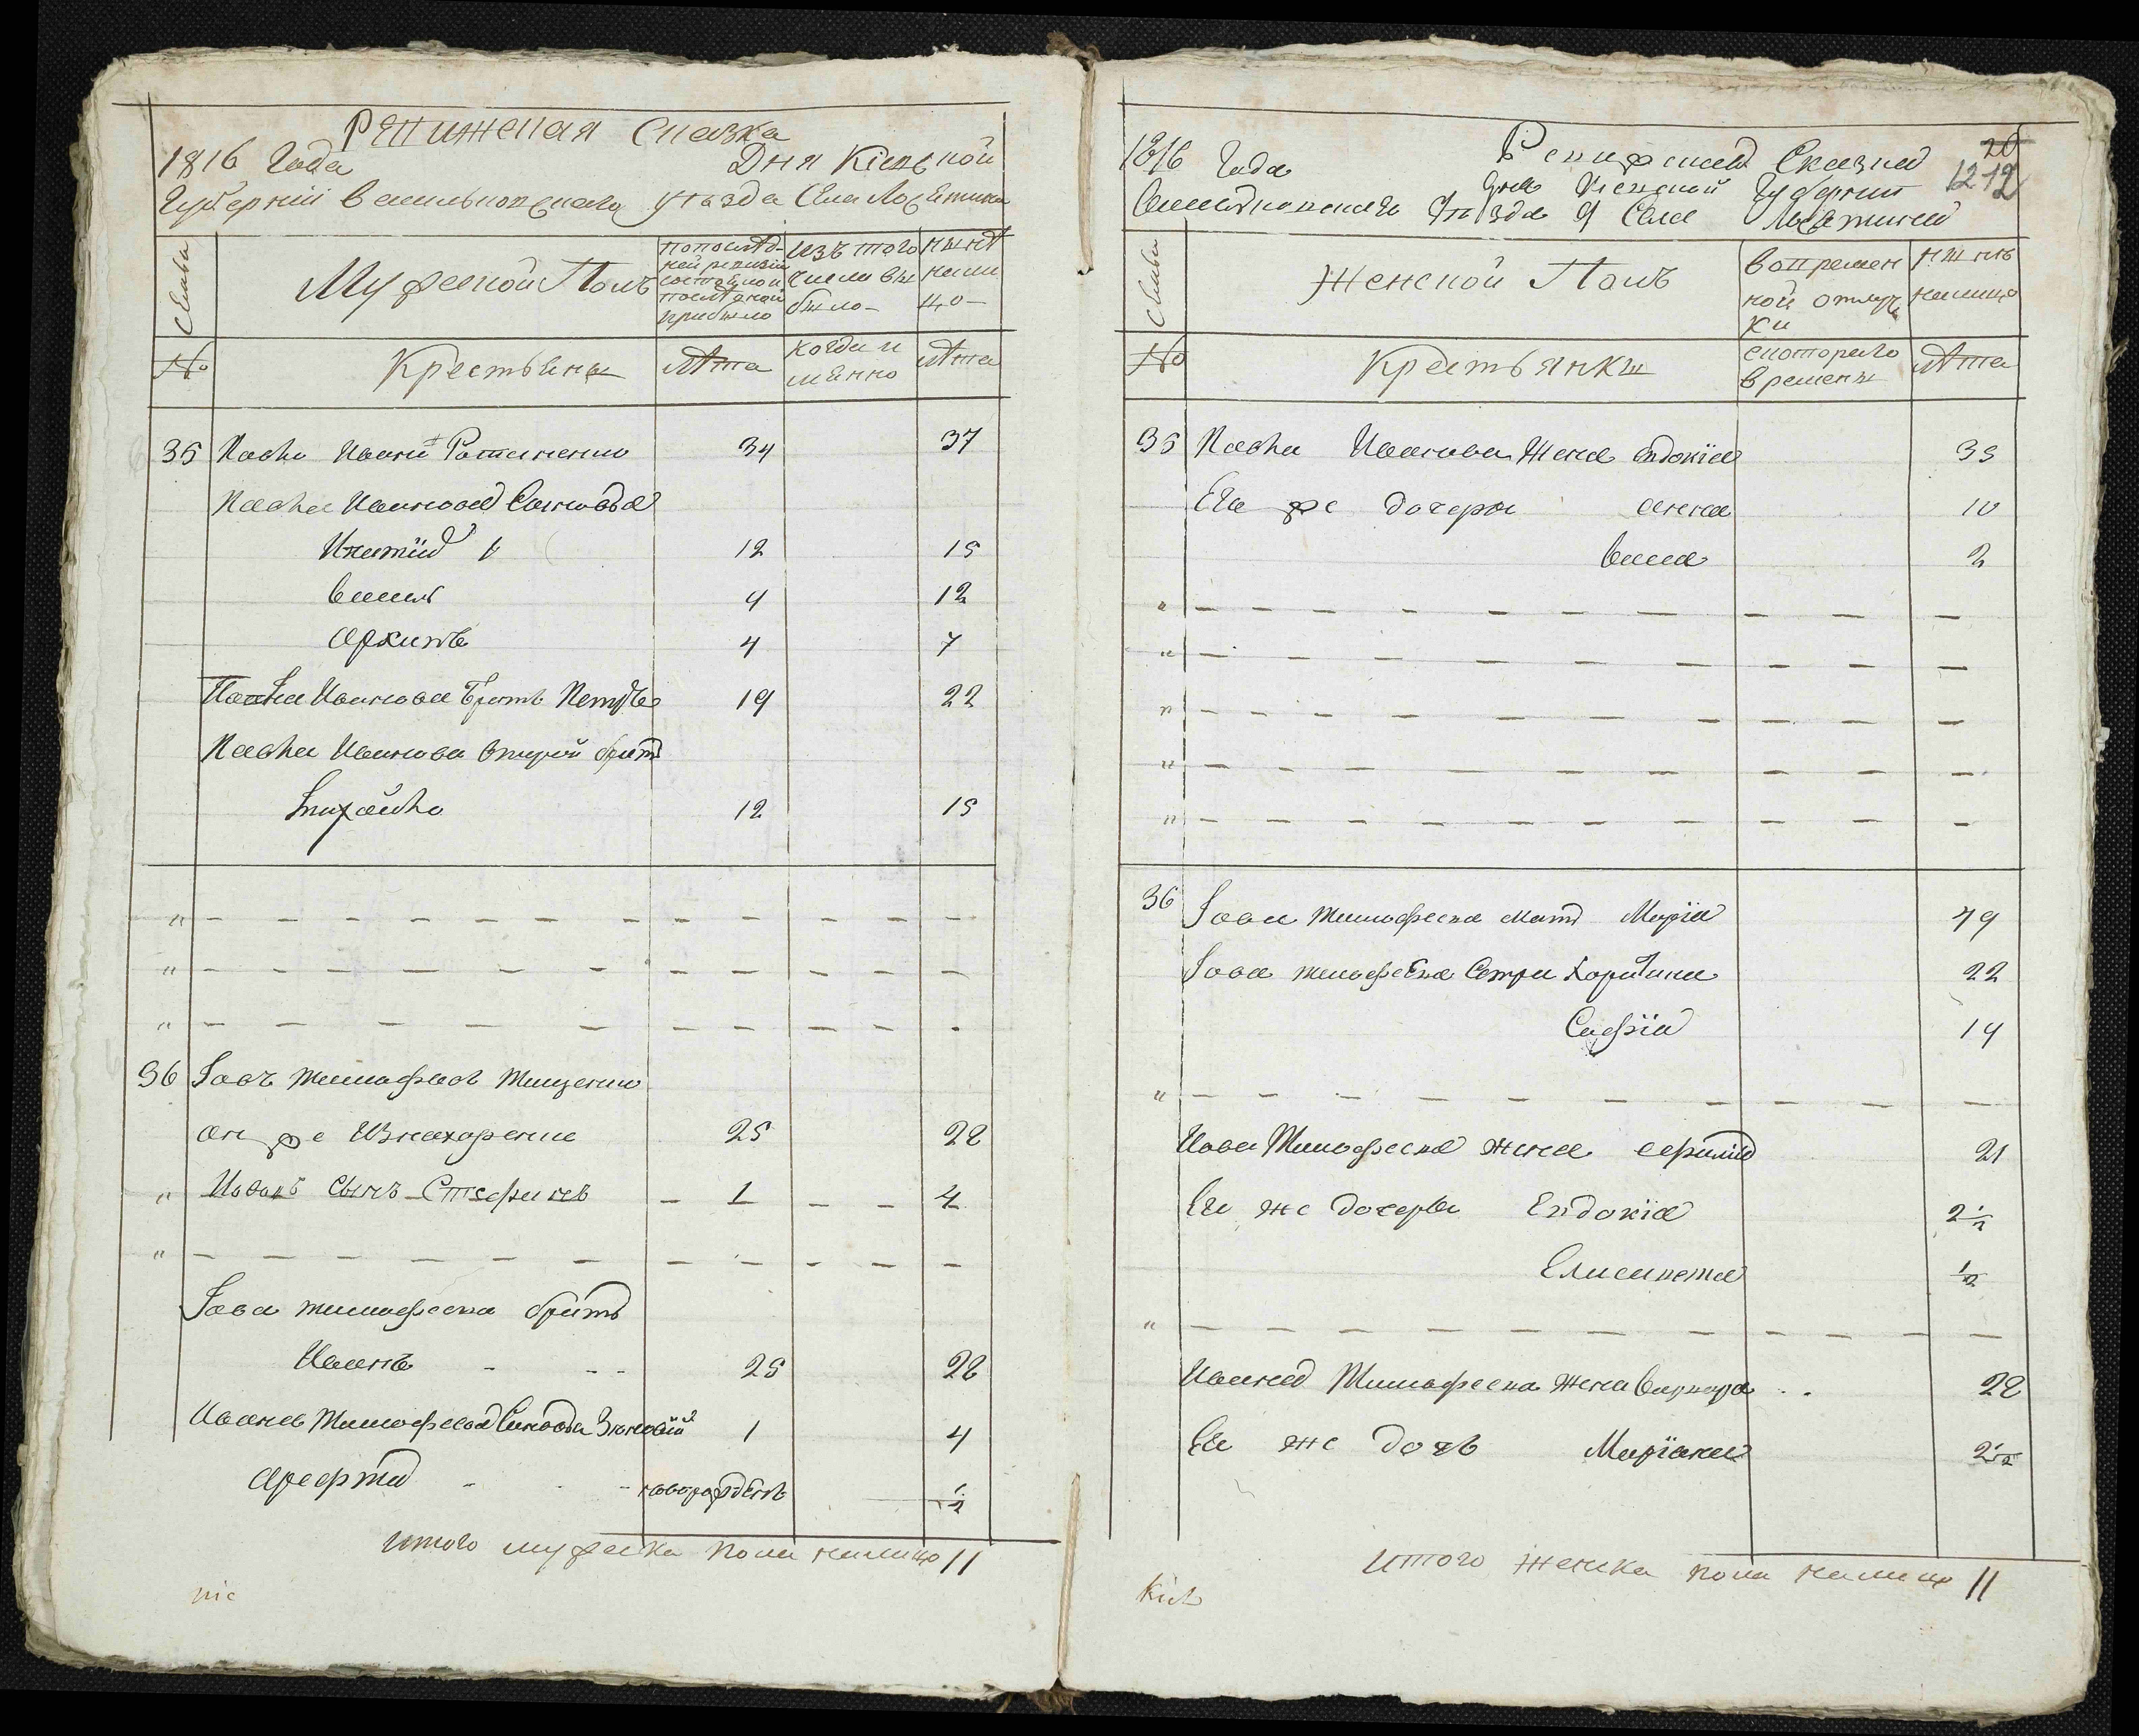 Ревижская Сказка
1816 Года Дня Кіевской
Губерніи васильковскаго уезда Села Лосятина
Семьи
Мужеской Полъ
по последней ревизіи состояло и после оной прибыло
изъ того числа выбыло
ныне налицо
№
Крестьяне
лета
когда именно
лета
35 Павло Иванов Потапенко 34 37
Павла Иванова Сыновья
Игнатій 12 15
василь 9 12
Архипъ 4 7
Павла Иванова братъ Петръ 19 22
Павла Иванова вторый братъ
Михайло 12 15
36 Іовъ Тимофеевъ Тищенко
он же Изнахоренко 25 28
" Иовавъ сынъ Стефанъ 1 4
Іова тимофеева братъ
Иванъ 25 28
Ивана Тимофеева Сыновья Зиновій 1 4
Арефта новорожденъ ½
итого мужеска пола налицо 11
20
1816 Года Ревижская Сказка 12 12
дня Кіевской Губерніи
Васильковскаго уезда Села Лосятина
Семьи
Женской Полъ
во временной отлучке
ныне налицо
№
Крестьянки
с которого времени
лета
35 Павла Иванова Жена Евдокія 35
Его же дочери анна 10
васса 2
36 Іова тимофеева мать Марія 49
Іова тимофеева Сестри Харитина 22
Софія 19
Иова Тимофеева жена ефимія 21
Его же дочери Евдокія 2½
Елисавета ½
Ивана Тимофеева жена варвара 28
Его же дочь Маріана 2½
итого женска пола налицо 11
Кіев